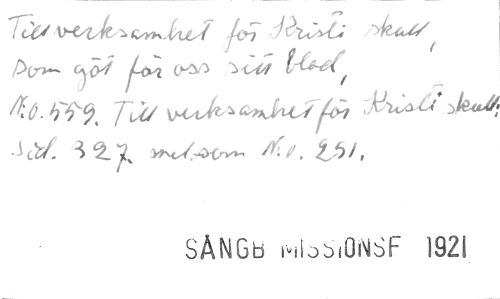 Till verksamhet för Kristi skull,
Som göt för oss sitt blod,
N:o. 559. Till verksamhet för Kristi skull:
Sid. 327. mel. som N:o. 251.
SÅNGB MISSIONSF 1921